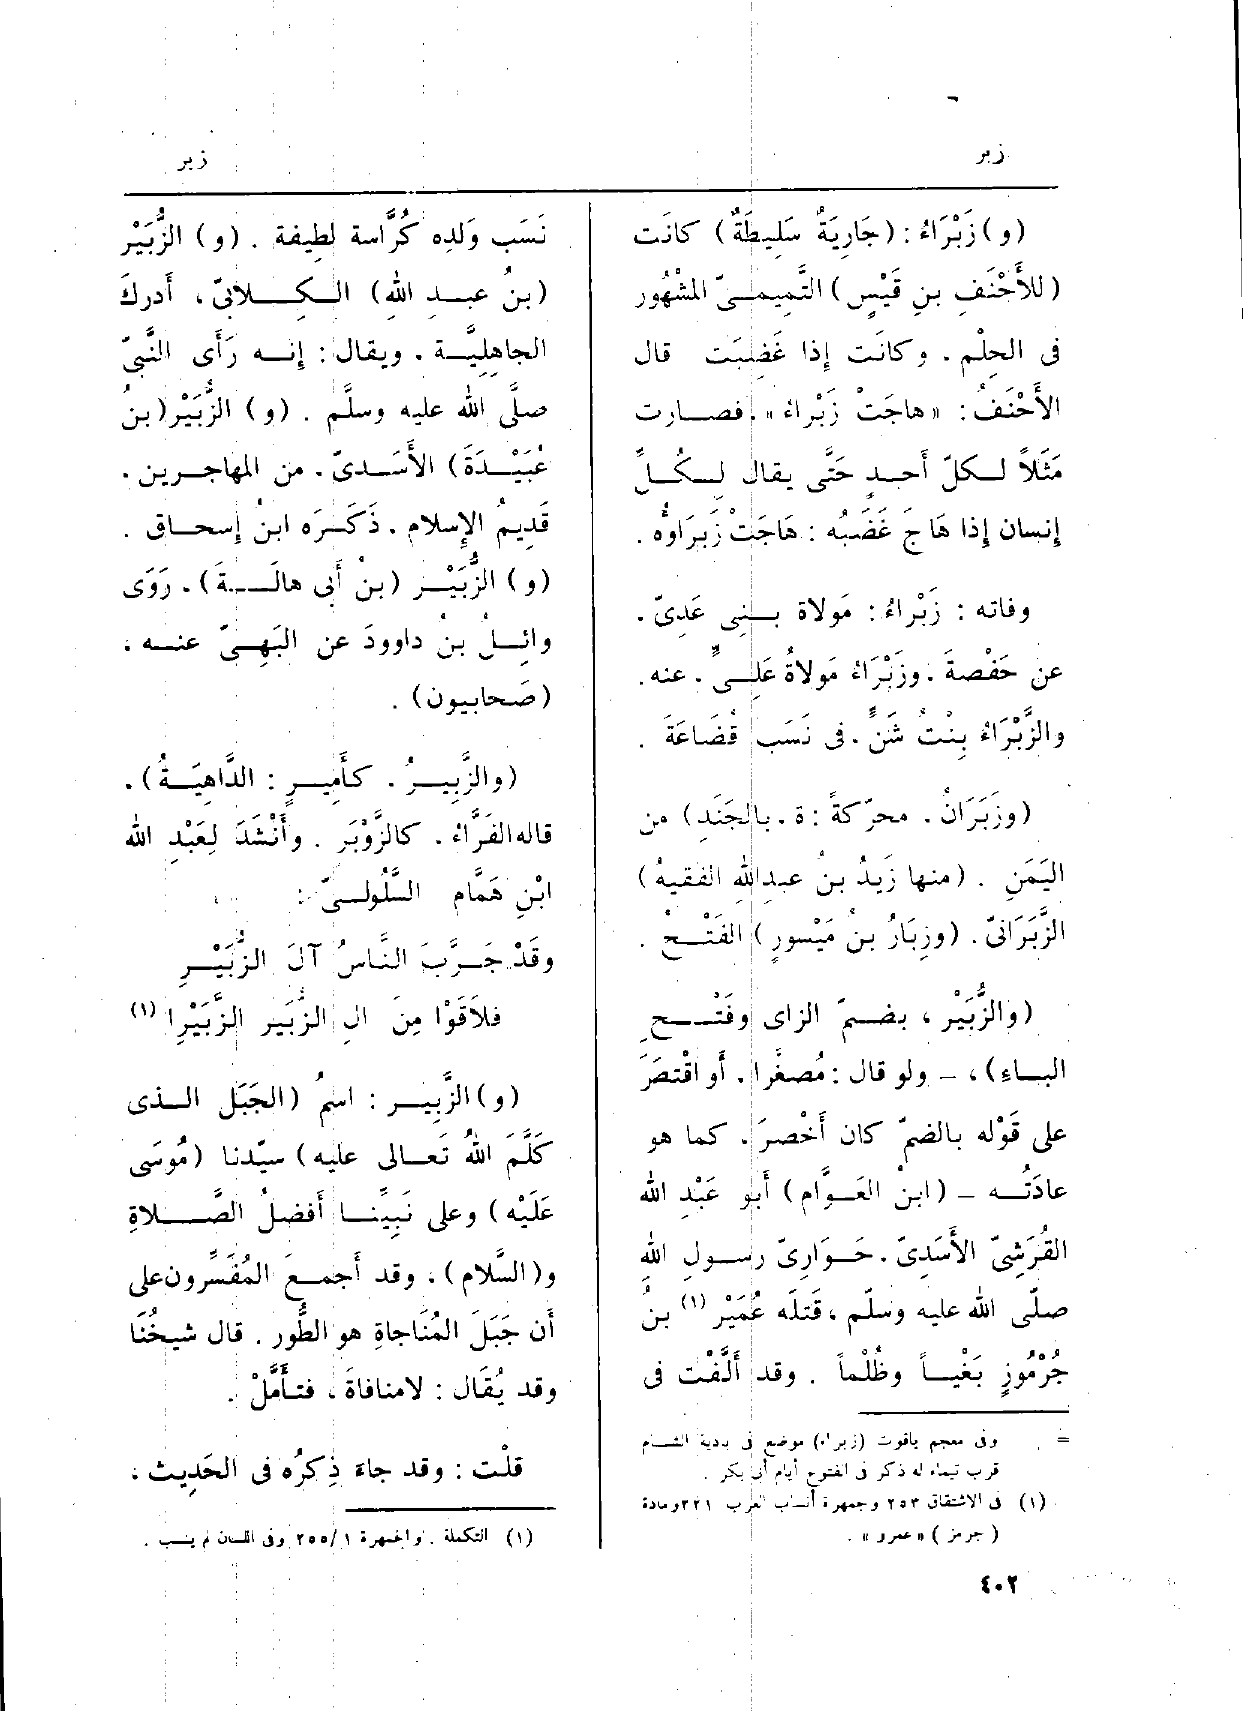 زبر
زبر
(و) زَبْرَاءُ : (جَارِيَةٌ سَلِيطَةٌ) كانَت
(للأَحْنَفِ بنِ قَيْسٍ) التَّمِيمِىّ المشْهُور
فى الحِلْم . وكانَت إذا غَضِبَت قال
الأَحْنَفُ : «هاجَتْ زَبْراءُ» . فصارت
مَثَلاً لكلّ أَحدٍ حَتَّى يقال لِكُلِّ
إنسان إذا هَاجَ غَضَبُه : هَاجَتْ زَبَراؤُه .
وفاته : زَبْراءُ : مَولاة بنِى عَدِىّ .
عن حَفْصةَ . وزَبْرَاءُ مَولاةُ عَلِىٍّ . عنه .
والزَّبْرَاءُ بِنْتُ شَنٍّ . فى نَسَب قُضَاعَةَ .
(وزَبَرَانُ . محرّكةً : ة . بالجَنَدِ) من
اليَمَنِ . (منها زَيدُ بنُ عبدالله الفقيهُ)
الزَّبَرَانىّ . (وزبَارُ بنُ مَيْسورٍ) الفَتْح .
(والزُّبَيْر ، بضمّ الزاى وفَتْحِ
الباء) ، – ولو قال : مُصغَّرا . أَو اقْتصَرَ
على قَوْله بالضمّ كان أَخْصرَ . كما هو
عادَتُه – (ابنُ العَوَّام) أَبو عَبْدِ الله
القُرَشِىّ الأَسَدِىّ . حَوَارِىّ رسولِ الله
صلَّى الله عليه وسلّم ، قَتلَه عُمَيْر (١) بنُ
جُرْمُوزٍ بَغْياً وظُلْماً . وقد أَلَّفْت فى
= وفى معجم ياقوت (زبراء) موضع فى بادية الشام
قرب تيماء له ذكر فى الفتوح أيام أبى بكر .
(١) فى الاشتقاق ٢٥٣ وجمهرة أنساب العرب ٢٢١ ومادة
(جرمز) «عمرو» .
نَسَب وَلَدِه كُرَّاسة لطِيفة . (و) الزُّبَيْر
(بنُ عبدِ الله) الكلابىّ ، أَدركَ
الجاهلِيَّة . ويقال : إنه رَأَى النَّبىّ
صلَّى الله عليه وسلَّم . (و) الزُّبَيْر (بنُ
عُبَيْدَةَ) الأَسَدىّ . من المهاجرين .
قَدِيمُ الإِسلام . ذَكَرَه ابنُ إسحاق .
(و) الزُّبَيْر (بنُ أَبى هالَةَ) . رَوَى
وائلُ بنُ داوودَ عن البَهِىّ عنه ،
(صَحابيون) .
(والزَّبِيرُ . كأَمِيرٍ : الدَّاهِيَةُ) .
قاله الفَرَّاءُ . كالزَّوْبَر . وأَنْشَدَ لِعَبْدِ الله
ابْنِ هَمَّام السَّلُولىّ :
وقَدْ جَرَّبَ النَّاسُ آلَ الزُّبَيْرِ
فلاَقَوْا مِنَ ال الزُّبَير الزَّبَيْرَا (١)
(و) الزَّبِير : اسمُ (الجَبَل الذى
كَلَّمَ اللهُ تَعالى عليه) سيّدنا (مُوسَى
عَلَيْه) وعلى نَبِيِّنا أَفضلُ الصَّلاةِ
و(السَّلام) ، وقد أَجمعَ المُفَسِّرون على
أَن جَبَلَ المُنَاجاةِ هو الطُّور . قال شيخُنَا
وقد يُقَال : لامنافاةَ ، فتأَمَّلْ .
قلْت : وقد جاءَ ذِكرُه فى الحَدِيث ،
(١) التكملة . والجمهرة ١/٢٥٥ وفى اللسان لم ينسب .
٤٠٢